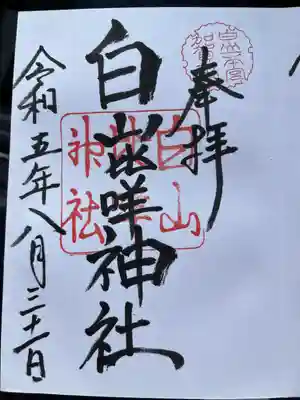 奉拝
白山比咩神社
白山
比咩
神社
令和五年八月三十一日